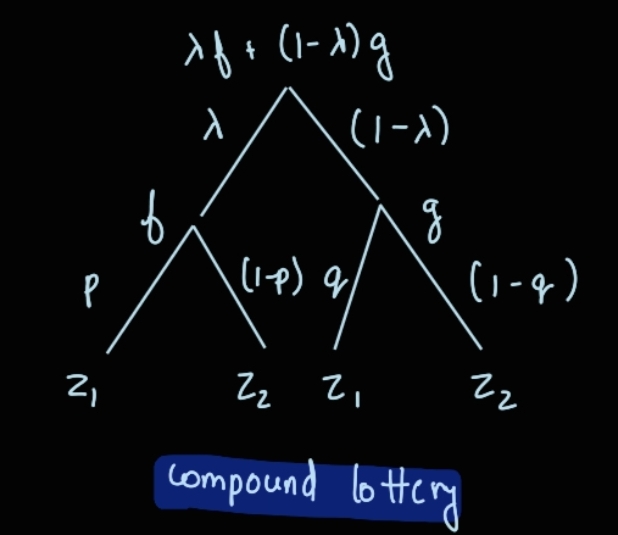 λf + (1-λ)g
λ (1-λ)
f g
p (1-p) q (1-q)
z₁ z₂ z₁ z₂
compound lottery